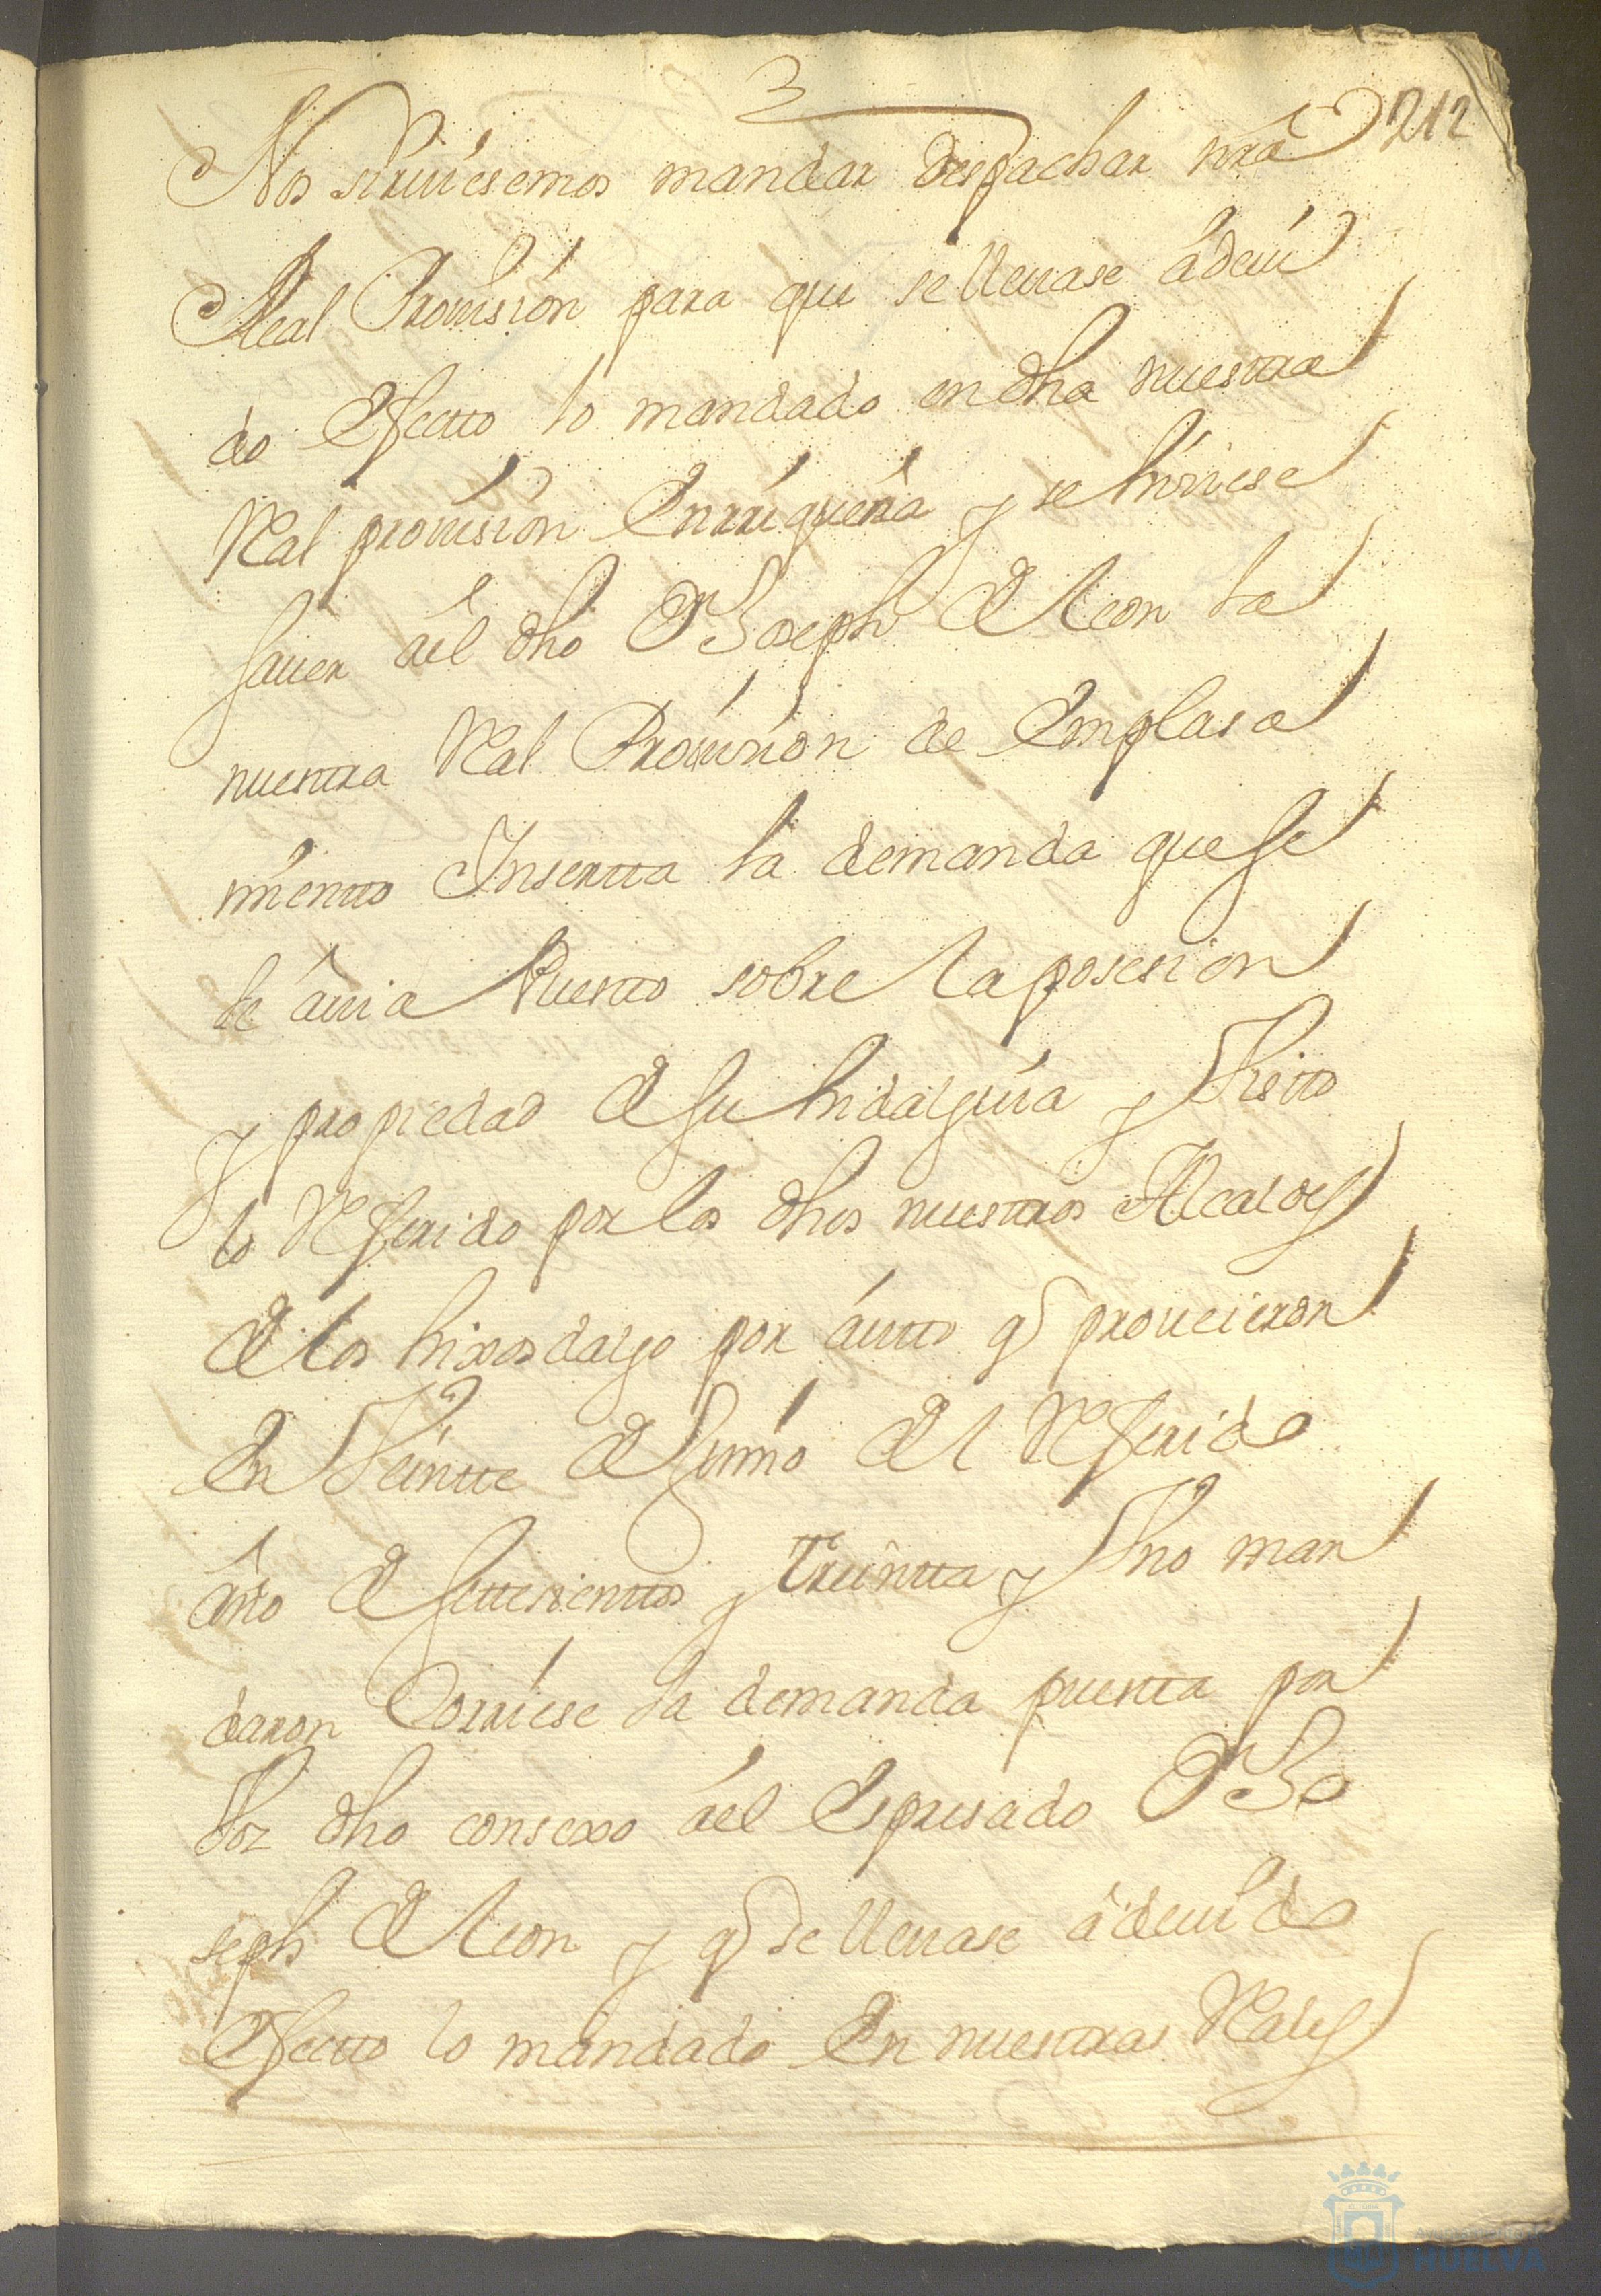 3
212
Nos siruiesemos mandar despachar nrâ
Real Prouision para que se lleuase â deui
do Efectto lo mandado en dha nuesttra
Real prouision Enrriqueña y se hiziese
sauer âel dho Dn Joseph de Leon la
nuesttra Real Prouision de Emplasa
mientto Insertta la demanda que se
le âuia Puestto sobre la posesion
y propiedad de su hidalguia y Vistto
lo Referido por los dhos nuesttros Alcaldes
de los hixosdalgo por âutto q proueieron
En Veintte de Junio del Referido
âño de settesienttos y treintta y Vno man
daron Corriese la demanda puestta por
Por dho consexo âel Espresado Dn Jo
seph de Leon y q se lleuase â deuido
Efectto lo mandado En nuesttras Reales
Ayuntamiento de
HUELVA